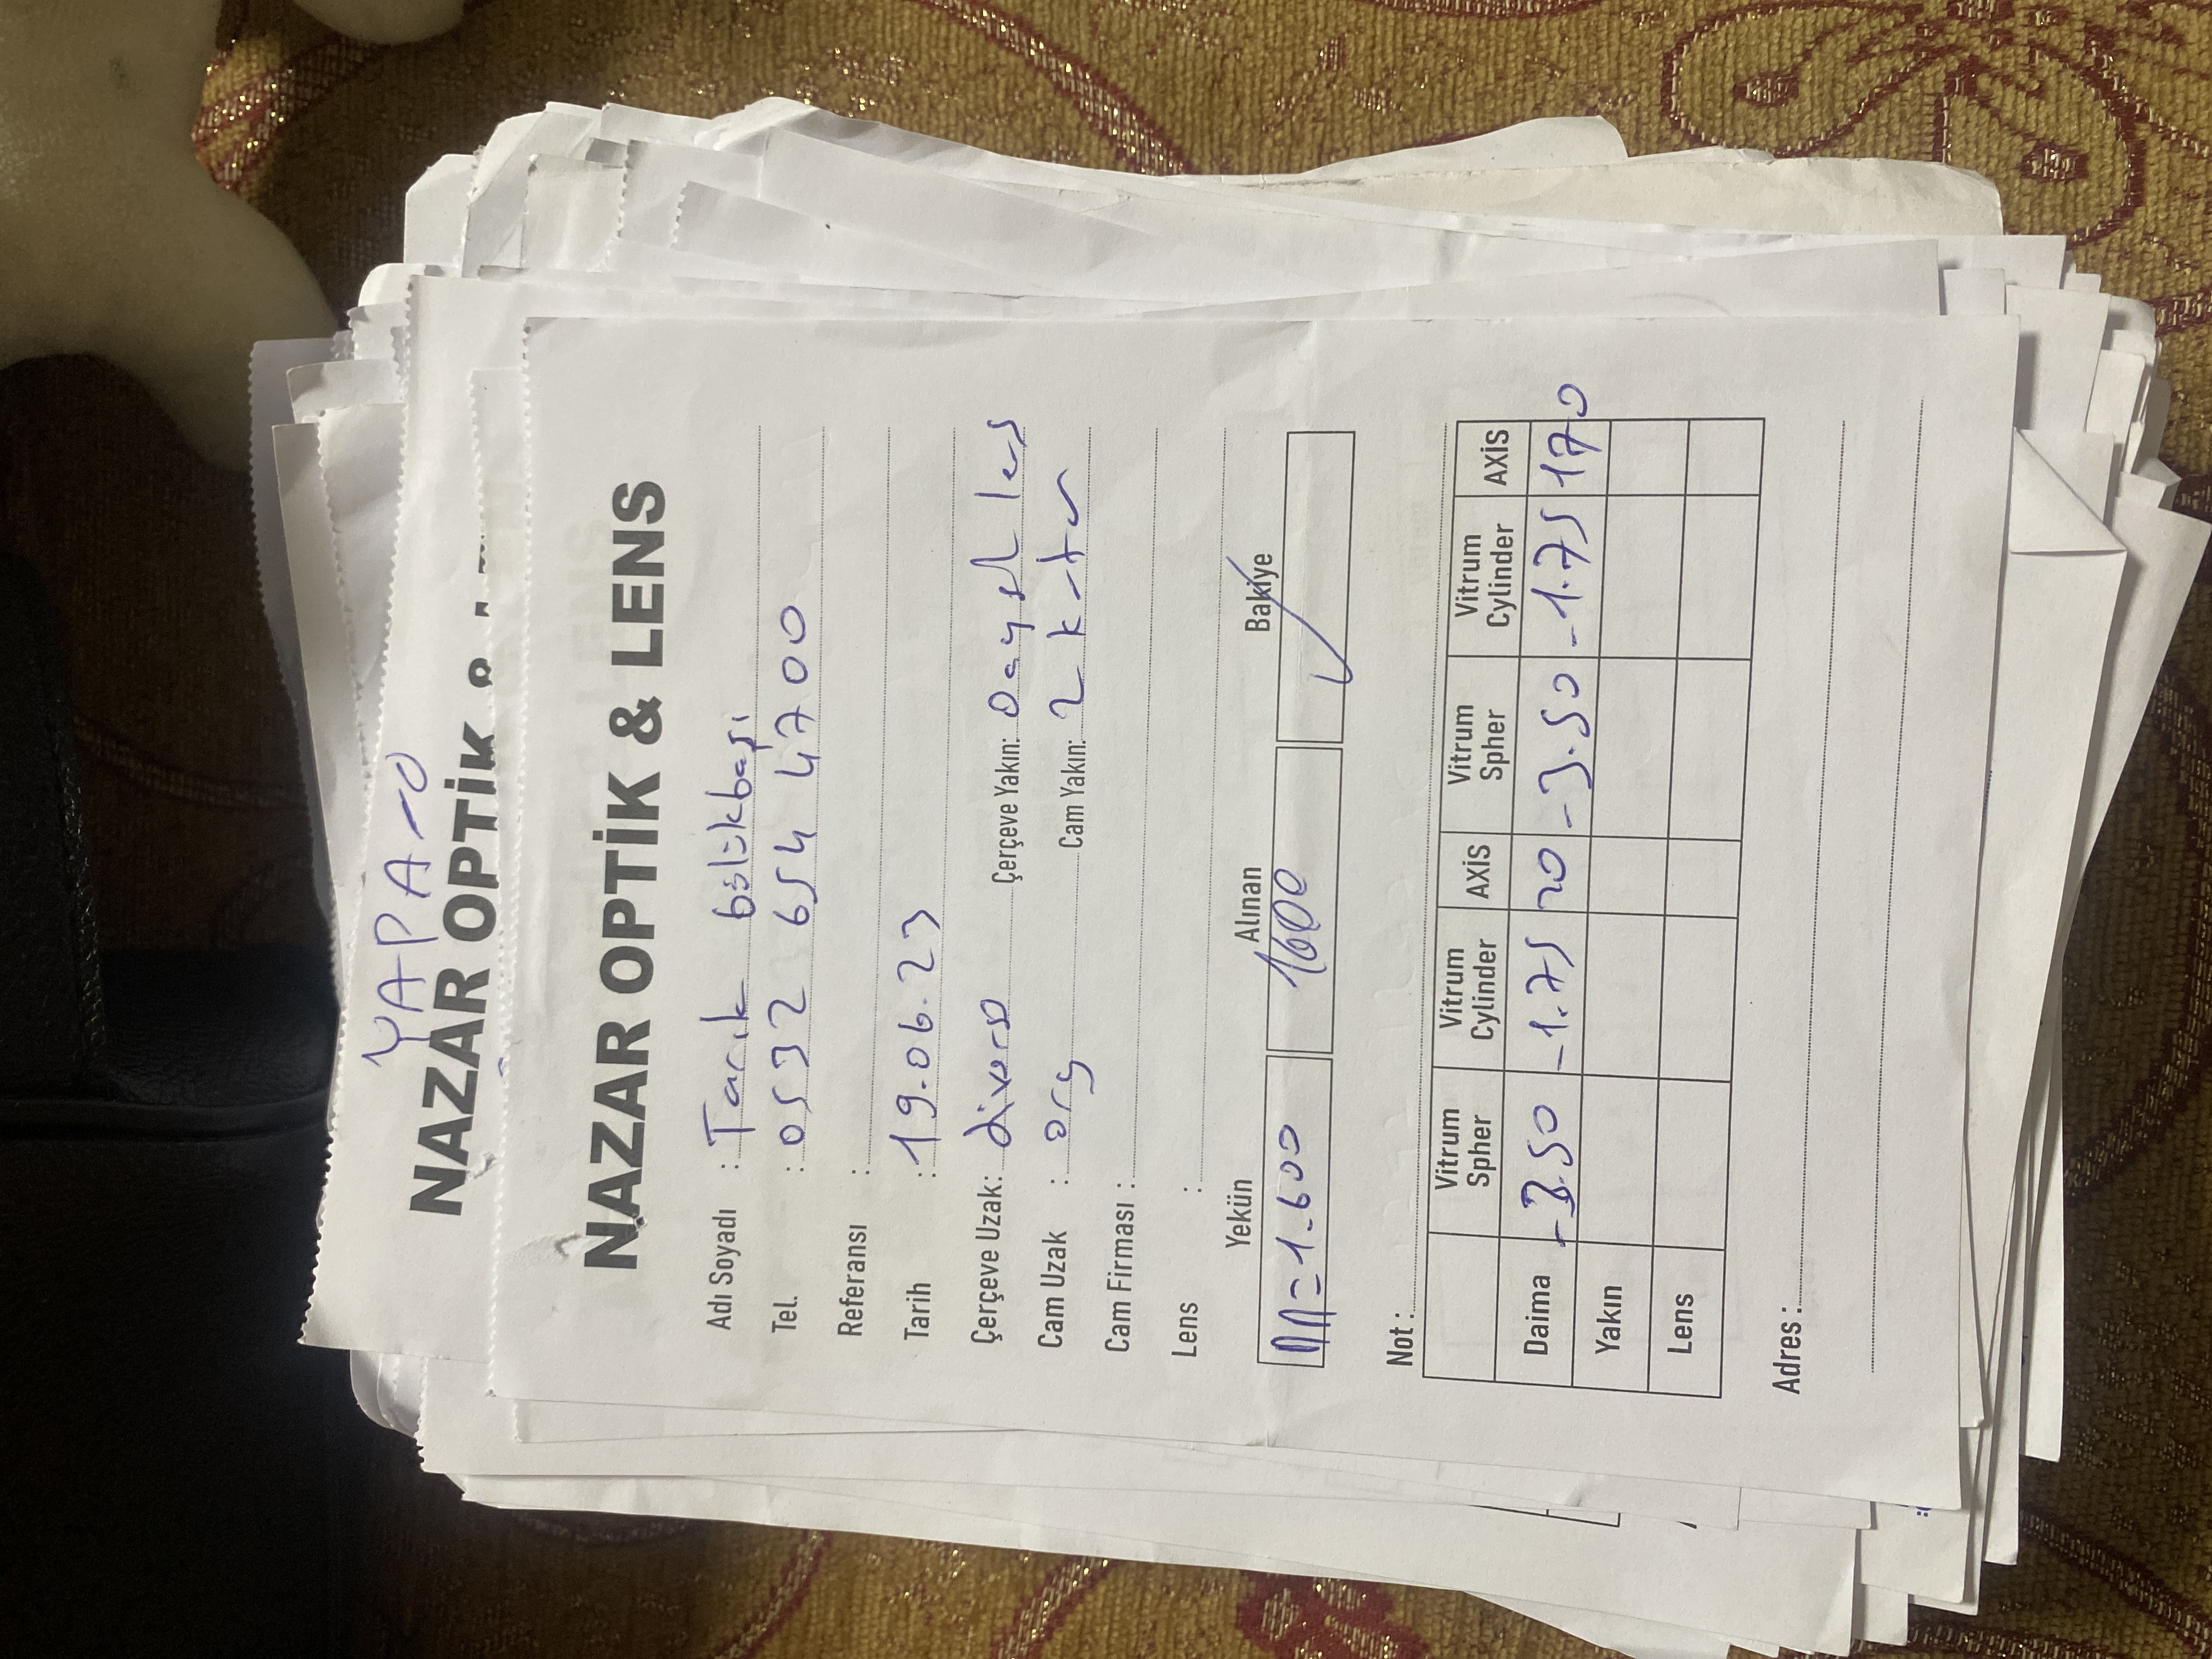 YAPA
NAZAR OPTİK &
NAZAR OPTİK & LENS
Adı Soyadı : Tarık bölükbaşı
Tel. : 0532 654 4700
Referansı :
Tarih : 19.06.23
Çerçeve Uzak: diverso Çerçeve Yakın: Daysoft lens
Cam Uzak : org Cam Yakın: 2 kutu
Cam Firması :
Lens :
Yekün Alınan Bakiye
=1.600 1600 ✓
Not :
Vitrum Spher Vitrum Cylinder AXİS Vitrum Spher Vitrum Cylinder AXİS
Daima -3.50 -1.75 20 -3.50 -1.75 170
Yakın
Lens
Adres :